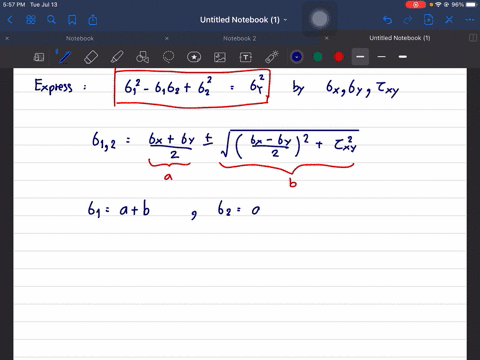 5:57 PM Tue Jul 13
96%
Untitled Notebook (1)
Notebook
Notebook 2
Untitled Notebook (1)
Express : σ₁² - σ₁σ₂ + σ₂² = σᵧ² by σx, σy, τxy
σ₁,₂ = (σx + σy)/2 ± √((σx - σy)/2)² + τxy²
a
b
σ₁ = a + b , σ₂ = a